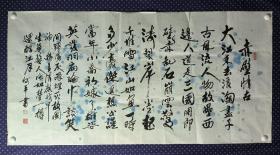 赤壁懷古
大江東去浪淘盡千
古風流人物故壘西
邊人道是三國周郎
赤壁亂石崩雲驚
濤裂岸卷起
千堆雪江山如畫一時
多少豪傑遙想公瑾
當年小喬初嫁了雄
姿英發羽扇綸巾談笑
間檣櫓灰飛煙滅故國
神遊多情應笑我早
生華髮人間如夢一樽
還酹江月